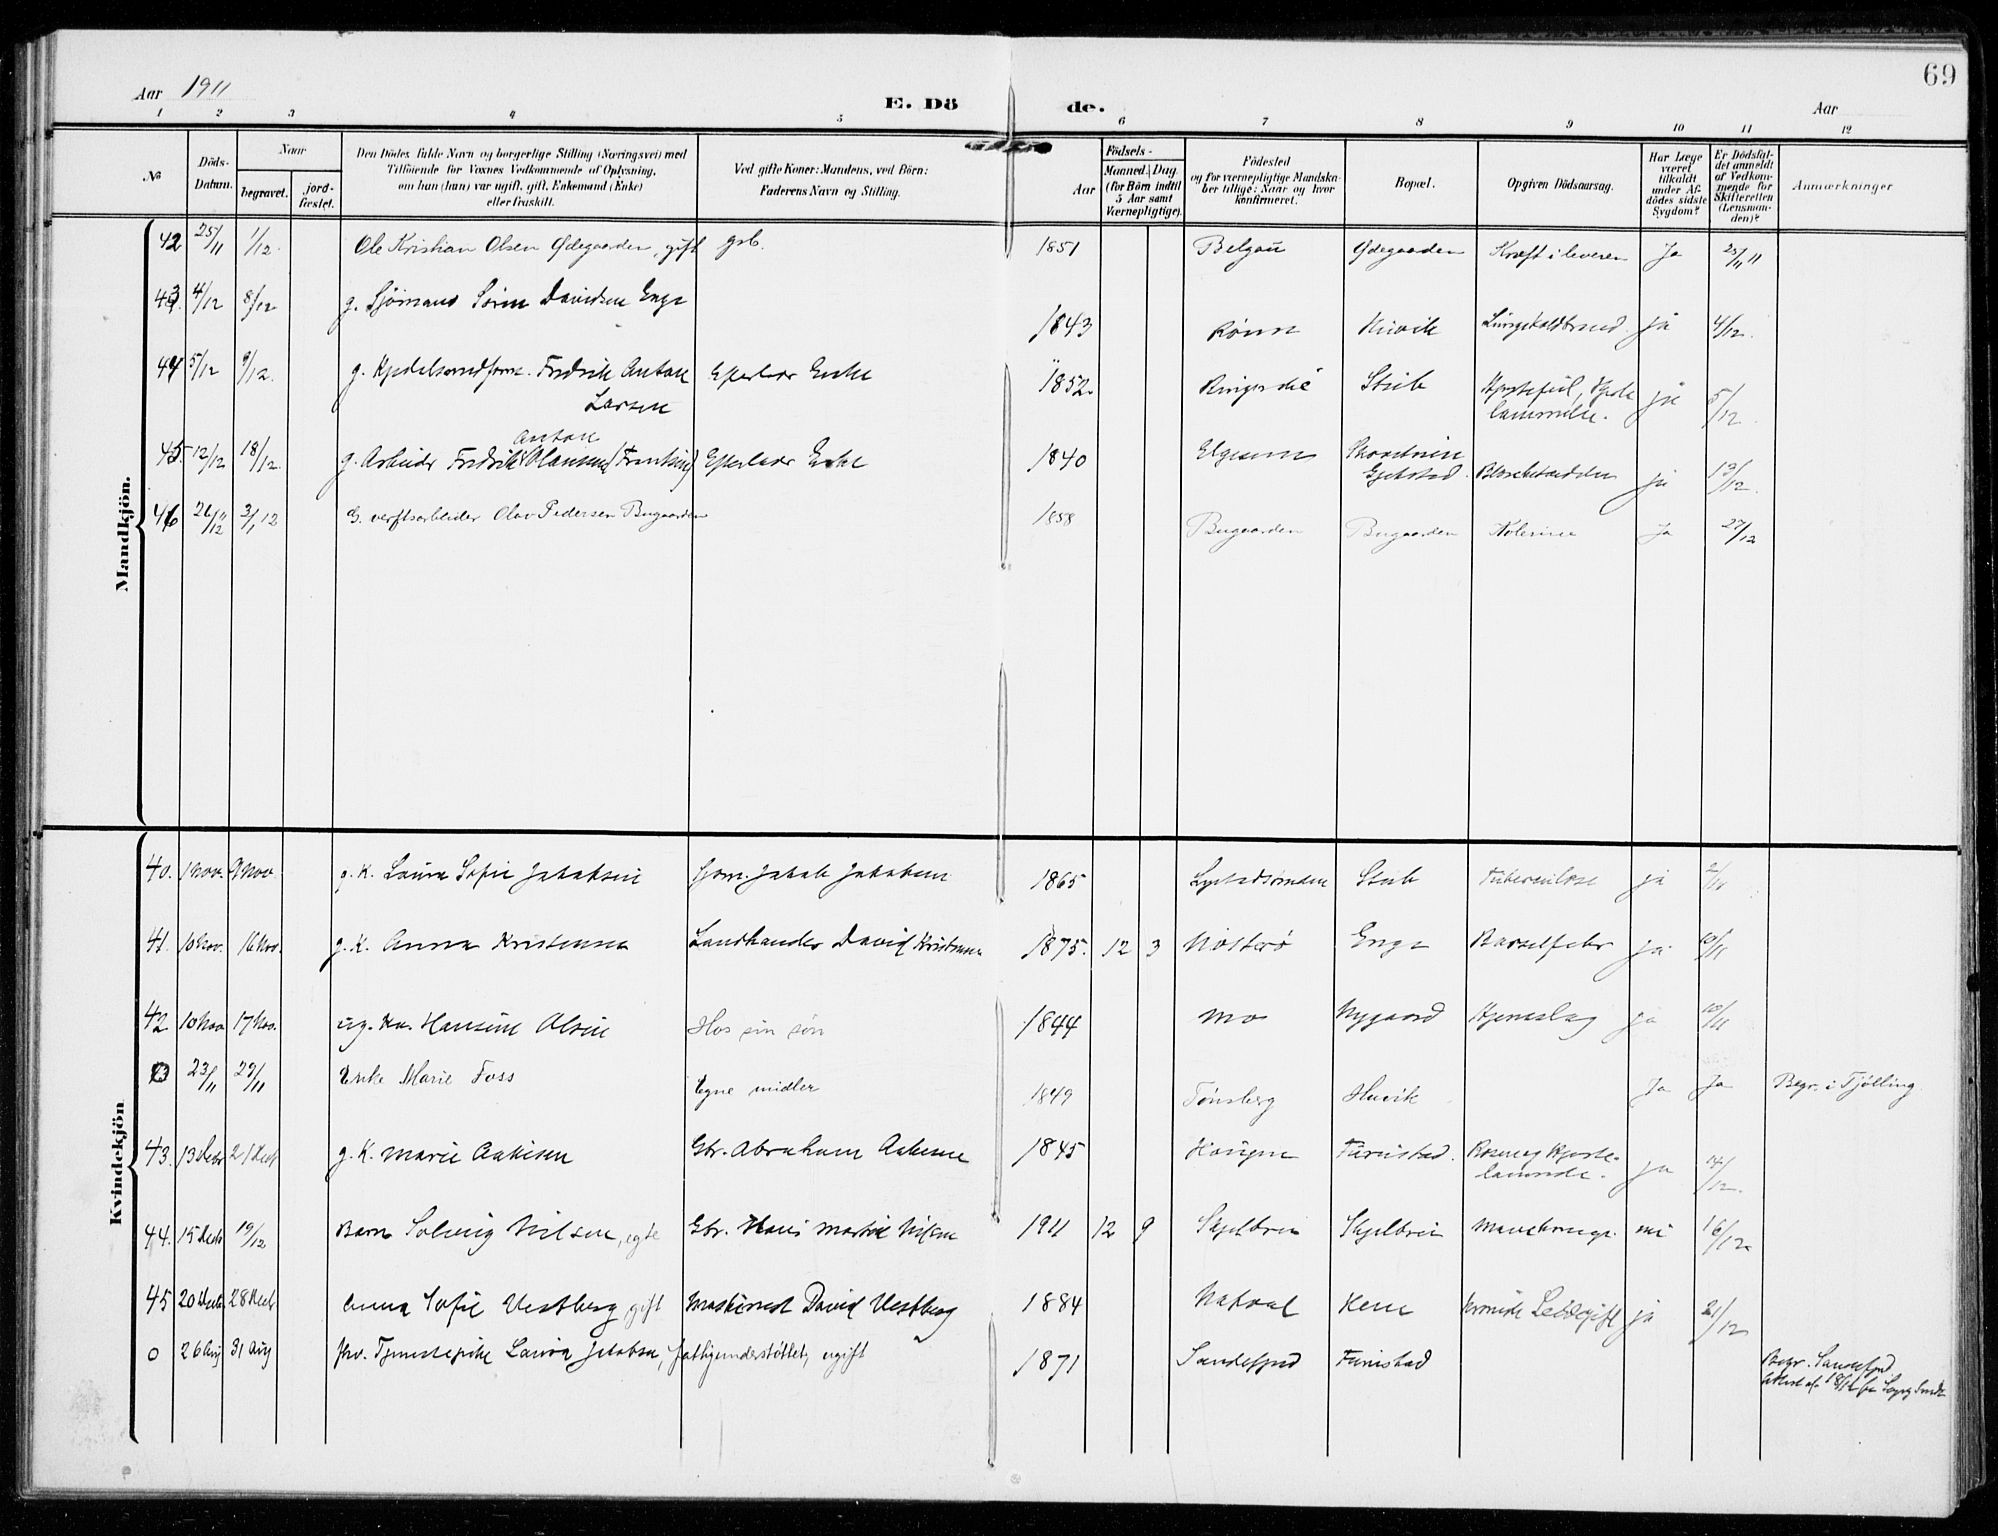 69
Aar 1911
E. Dö de.
Aar
1 2 3 4 5 6 7 8 9 10 11 12
No
Döds-Datum.
Naar
begravet.
jord-fæstet.
Den Dödes fulde Navn og borgerlige Stilling (Næringsvei) med
Tilföiende for Voxnes Vedkommende af Oplysning,
om han (hun) var ugift, gift, Enkemand (Enke)
eller fraskilt.
Ved gifte Koner: Mandens, ved Börn:
Faderens Navn og Stilling.
Födsels-
Aar
Maaned. Dag.
(for Börn indtil
5 Aar samt
Værnepligtige).
Födested
og for værnepligtige Mandska-
ber tillige: Naar og hvor
konfirmeret.
Bopæl.
Opgiven Dödsaarsag.
Har Læge
været
tilkaldt
under Af-
dödes sidste
Sygdom?
Er Dödsfal-
det anmeldt
af Vedkom-
mende for
Skifteretten
(Lensman-
den)?
Anmærkninger
Mandkjön.
42 25/11 1/12 Ole Kristian Olsen Ødegaarden, gift gsb. 1851 Ødegaarden Kræft i leveren Ja 25/11 11
43 4/12 8/12 g. Sjömand Sören Davidsen Enge 1843 Huvik ja 4/12
44 5/12 9/12 g. Fredrik Anton Larsen Efterlader Enke 1852 Stub Hjertefeil, Hjerte lammelse. ja 5/12
45 12/12 18/12 g. Arbeider Fredrik Anton Hansen Efterlader Enke 1840 Elgesem Gjekstad ja 13/12
46 26/12 3/1 12 G. verftsarbeider Olav Pedersen Bugaarden 1858 Bugaarden Bugaarden Ja 27/12
Kvindekjön
40. 1 Nov. 9 Nov. g. K. Laura Sofie Jakobsen Sjöm. Jakob Jakobsen 1865 Stub Tuberculose ja 2/11
41. 10 Nov. 16 Nov. g. K. Anna Kristensen Landhandler David Kristensen 1875. 12 3 Nötterö Enge Barselfeber ja 10/11
42 10 Nov. 17 Nov. ug. Kv. Hansine Olsen Hos sin sön 1844 Mo Nygaard Hjerneslag ja 10/11
0 23/11 29/11 Enke Marie Foss Egne midler 1849 Tönsberg Huvik Ja Ja Begr. i Tjölling
43. 13 Decbr 21 Decb g. K. Marie Aakesen Gbr. Abraham Aakesen 1845 Haugen Furustad. Hjerte-lammelse. ja 14/12.
44. 15 Decb 19/12 Barn Solveig Nilsen, egte Gbr. Hans Martin Nilsen 1911 12 9 Skjelbrei Skjelbrei nei 16/12
45 20 Decb. 28 Decbr Anna Sofie Vestberg gift Maskinist David Vestberg 1884 ja 21/12
0 26 Aug 31 Aug fhv. Tjenestepike Laura Jakobsen fattigunderstöttet, ugift 1871 Sandefjord Furustad Begr. Sandefjord